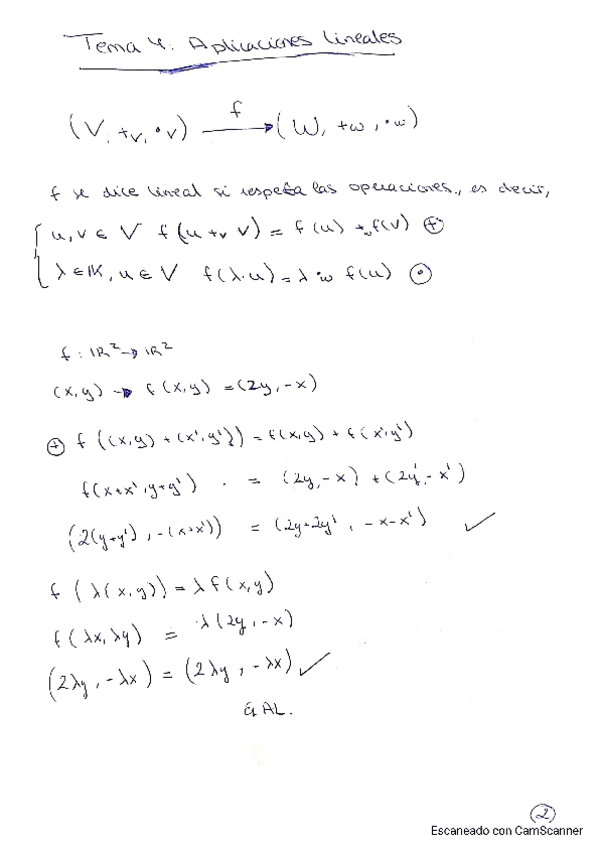 Tema 4. Aplicaciones lineales
(V, +v, ·v) —f→ (W, +w, ·w)
f se dice lineal si respeta las operaciones, es decir,
u, v ∈ V f(u +v v) = f(u) +w f(v) ⊕
λ ∈ K, u ∈ V f(λ·u) = λ ·w f(u) ⊙
f : ℝ² → ℝ²
(x,y) → f(x,y) = (2y, -x)
⊕ f((x,y) + (x',y')) = f(x,y) + f(x',y')
f(x+x', y+y') = (2y, -x) + (2y', -x')
(2(y+y'), -(x+x')) = (2y+2y', -x-x') ✓
f(λ(x,y)) = λ f(x,y)
f(λx, λy) = λ(2y, -x)
(2λy, -λx) = (2λy, -λx) ✓
Es AL.
2
Escaneado con CamScanner